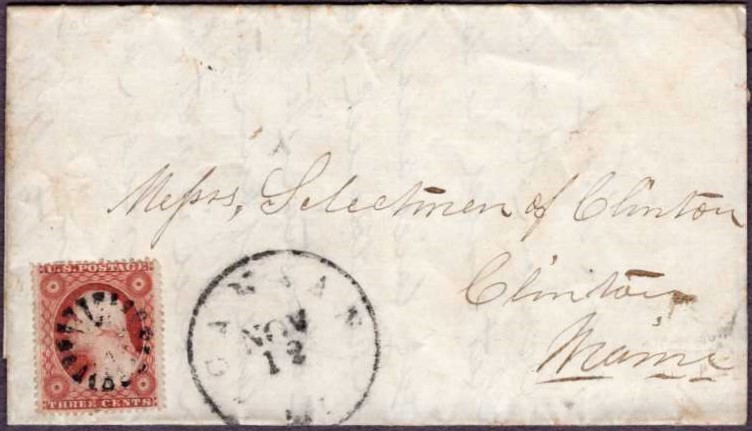 Messrs, Selectmen of Clinton
Clinton
Maine
U.S. POSTAGE
THREE CENTS
CANAAN
NOV
12